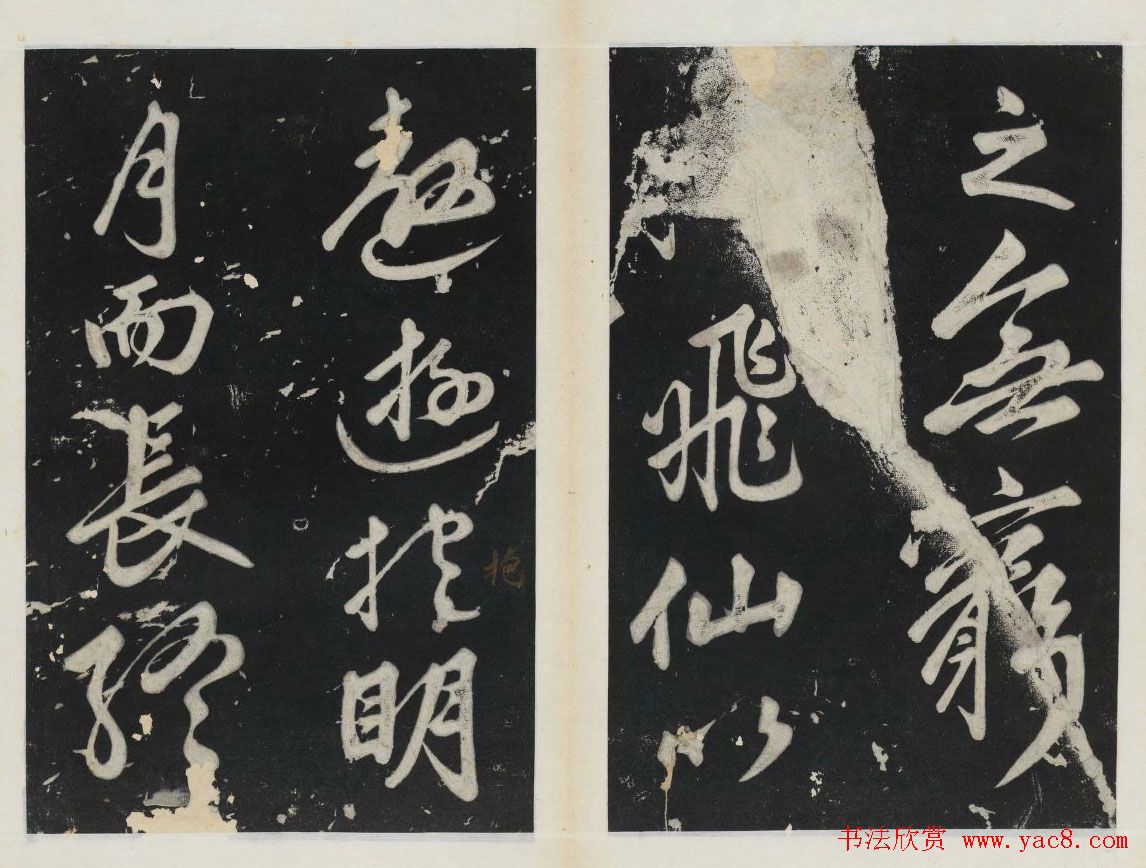 之無窮
飛仙以
遨遊抱明
抱
月而長終
书法欣赏 www.yac8.com